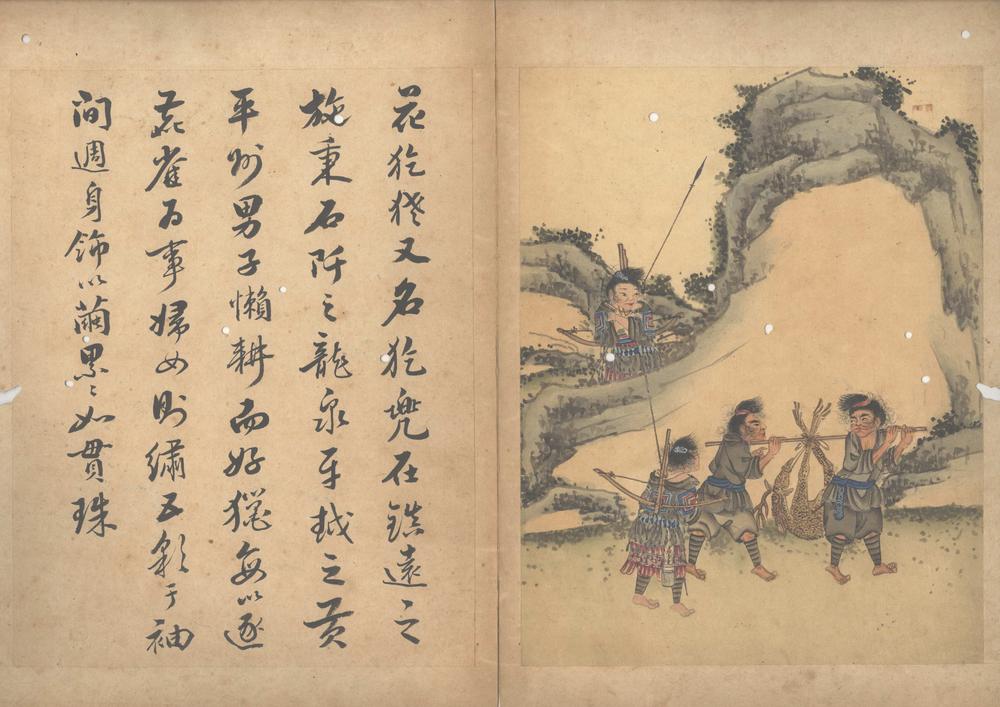 花犵又名犵兜在鎮遠之
施秉石阡之龍泉平越之黄
平州男子懶耕而好獵每以逐
鹿雀為事婦女則繡五彩于袖
間週身飾以繭累〻如貫珠